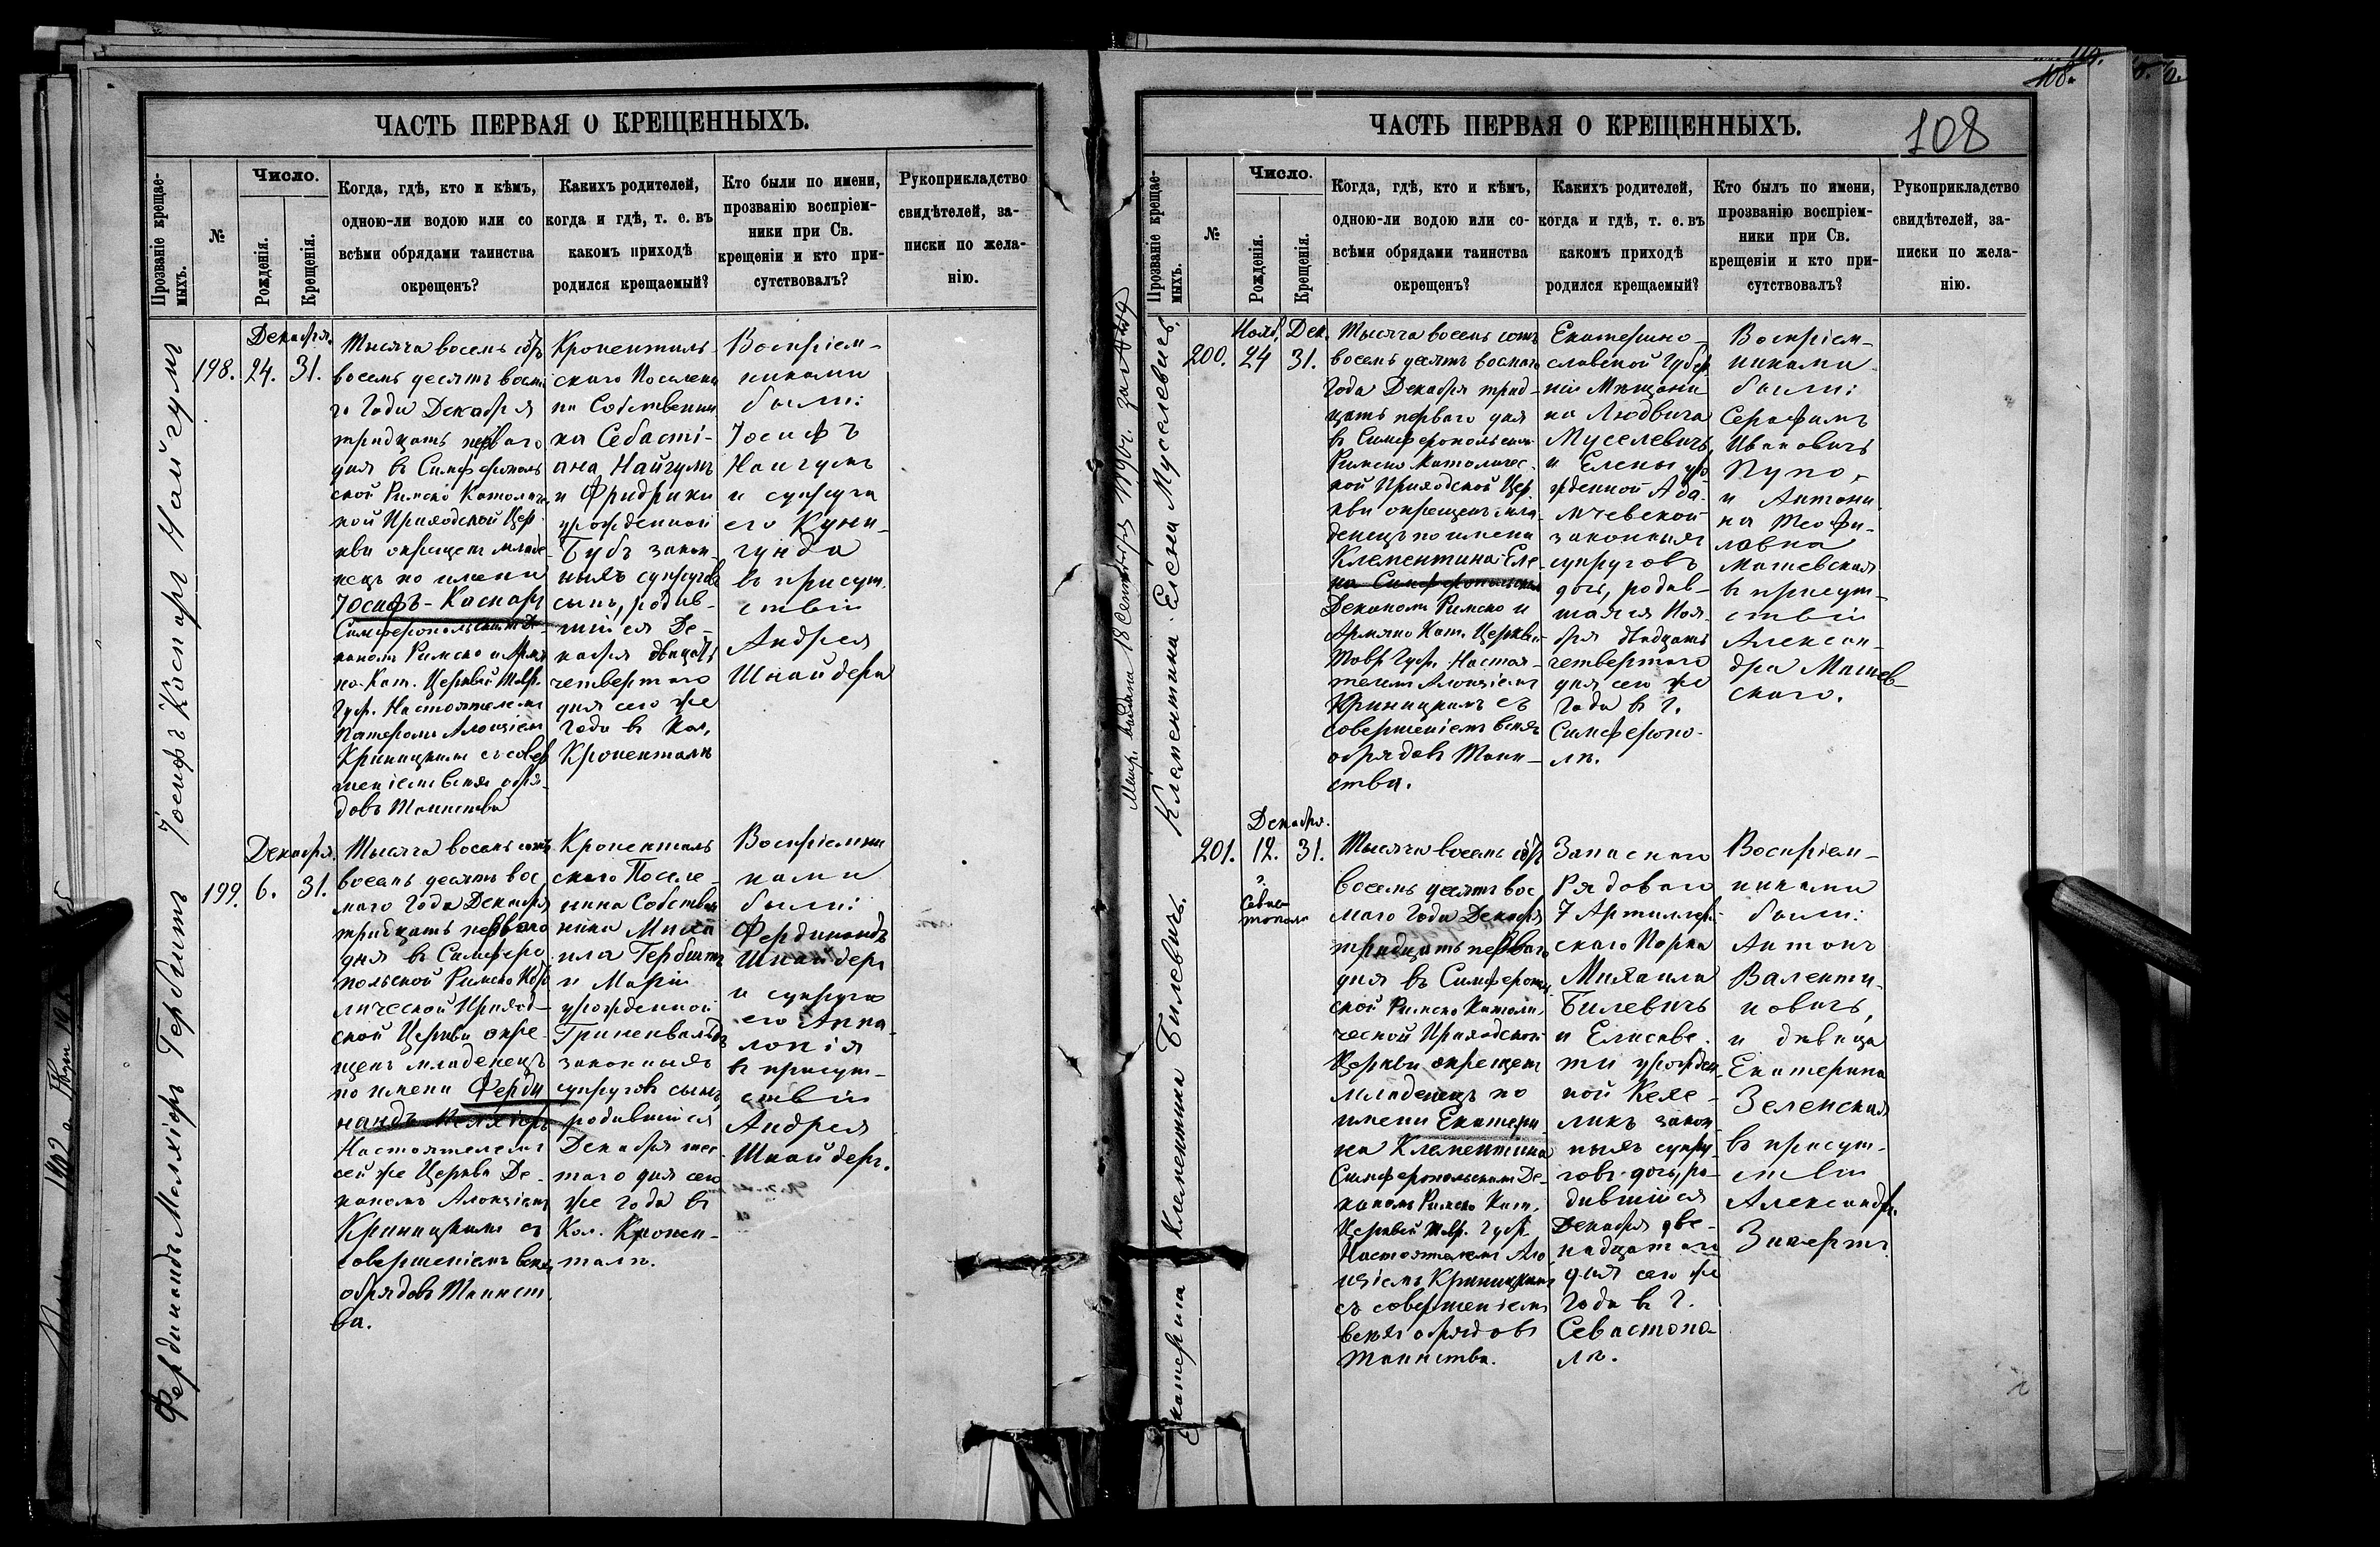 ЧАСТЬ ПЕРВАЯ О КРЕЩЕННЫХЪ.
Прозваніе крещае-
мыхъ.
№
Число.
Рожденія.
Крещенія.
Когда, гдѣ, кто и кѣмъ,
одною-ли водою или со
всѣми обрядами таинства
окрещенъ?
Какихъ родителей,
когда и гдѣ, т. е. въ
какомъ приходѣ
родился крещаемый?
Кто были по имени,
прозванію воспріем-
ники при Св.
крещеніи и кто при-
сутствовалъ?
Рукоприкладство
свидѣтелей, за-
писки по жела-
нію.
Іосифъ Каспаръ Найгумъ
198.
Декабря.
24. 31.
Тысяча восемь сотъ
восемь десятъ восьма
го Года Декабря
тридцать перваго
дня въ Симферополь
ской Римско Католиче
кой Приходской Цер
кви окрещенъ младе
нецъ по имени
Іосифъ-Каспаръ
Симферопольскимъ Де
каномъ Римско и Армя
но-Кат. Церквей Тавр.
Губ. Настоятелемъ
Патеромъ Алоизіемъ
Криницкимъ съ совер
шеніемъ всехъ обря
довъ Таинства
Кроненталь
скаго Поселяни
на Собственни
ка Себасті-
ана Найгумъ
и Фридрики
урожденной
Бубъ закон
ныхъ супруговъ
сынъ, родив-
шійся Де-
кабря двадцать
четвертаго
дня сего же
Года въ Кол.
Кроненталь
Воспріем-
никами
были:
Іосифъ
Найгумъ
и супруга
его Куни-
гунда
въ присут
ствіи
Андрея
Шнайдера
Фердинандъ Мелхіоръ Гербитъ
199.
Декабря.
6. 31.
Тысяча восемь сотъ
восемь десятъ вос
маго Года Декабря
тридцать перваго
дня въ Симферо
польской Римско Като
лической Приход-
ской Церкви окре-
щенъ младенецъ
по имени Ферди
нандъ Мелхіоръ
Настоятелемъ
сей же Церкви Де-
каномъ Алоизіемъ
Криницкимъ съ
совершеніемъ всехъ
обрядовъ Таинст
ва.
Кроненталь
скаго Поселе-
нина Собствен
ника Миха
ила Гербитъ
и Маріи
урожденной
Гриненвальдъ
законныхъ
супруговъ сынъ,
родившійся
Декабря шес
таго дня сего
же года въ
Кол. Кронен-
таль.
Воспріемни
ками
были:
Фердинандъ
Шнайдеръ
и супруга
его Аппо-
лонія
въ присут-
ствіи
Андрея
Шнайдеръ.
ЧАСТЬ ПЕРВАЯ О КРЕЩЕННЫХЪ.
108
108
Прозваніе крещае-
мыхъ.
№
Число.
Рожденія.
Крещенія.
Когда, гдѣ, кто и кѣмъ,
одною-ли водою или со-
всѣми обрядами таинства
окрещенъ?
Какихъ родителей,
когда и гдѣ, т. е. въ
какомъ приходѣ
родился крещаемый?
Кто былъ по имени,
прозванію воспріем-
ники при Св.
крещеніи и кто при-
сутствовалъ?
Рукоприкладство
свидѣтелей, за-
писки по жела-
нію.
Метр. выдана 18 Сентября 1190г. за №
Клементина-Елена Муселевичъ.
200.
Нояб. Дек.
24 31.
Тысяча восемь сотъ
восемь десятъ восмаго
Года Декабря трид-
цать перваго дня
въ Симферопольской
Римско Католичес
кой Приходской Цер
кви окрещенъ мла
денецъ по имени
Клементина-Еле-
на Симферопольскимъ
Деканомъ Римско и
Армяно Кат. Церквей
Тавр. Губ. Настоя-
телемъ Алоизіемъ
Криницкимъ съ
совершеніемъ всехъ
обрядовъ Таин-
ства.
Екатерино-
славской Губер
ніи Мѣщани
на Людвига
Муселевичъ
и Елены уро
жденной Ада-
мчевской
законныхъ
супруговъ
дочь, родив-
шаяся Ноя-
бря двадцать
четвертаго
дня сего же
Года въ г.
Симферопо-
лѣ.
Воспріем-
никами
были:
Серафимъ
Ивановичъ
Пупо,
и Антони
на Теофи-
ловна
Машевская
въ присут-
ствіи
Алексан-
дра Машев-
скаго.
Екатерина Клементина Билевичъ.
201.
Декабря.
12. 31.
г.
Севас-
тополь
Тысяча восемь сотъ
восемь десятъ вос
маго Года Декабря
тридцать перваго
дня въ Симферополь
ской Римско Католи
ческой Приходской
Церкви окрещенъ
младенецъ по
имени Екатери
на Клементина
Симферопольскимъ Де-
каномъ Римско Кат.
Церквей Тавр. Губ.
Настоятелемъ Ало
изіемъ Криницкимъ
съ совершеніемъ
всехъ обрядовъ
Таинства.
Запаснаго
Рядоваго
7 Артиллерій
скаго Парка
Михаила
Билевичъ
и Елисаве-
ты урожден
ной Келе-
никъ закон
ныхъ супру-
говъ дочь, ро-
дившійся
Декабря две-
надцатаго
дня сего же
Года въ г.
Севастопо-
лѣ.
Воспріем-
никами
были:
Антонъ
Валенти-
новичъ,
и дѣвица
Екатерина
Зеленская
въ присут-
ствіи
Александра